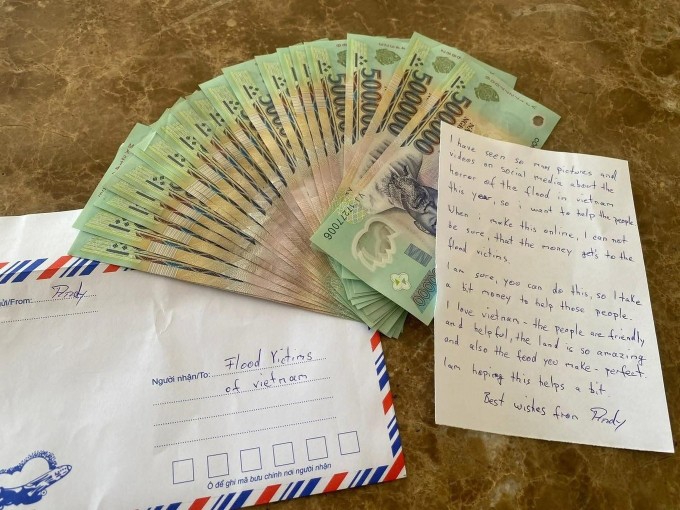 500000
500000
500.000
500.000
VN
I have seen so many pictures and
videos on social media about the
horror of the flood in vietnam
this year, so i want to help the people.
When i make this online, I can not
be sure, that the money gets to the
flood victims.
I am sure, you can do this, so I take
a bit money to help those people.
I love vietnam - the people are friendly
and helpful, the land is so amazing
and also the food you make - perfect.
I am hoping this helps a bit.
Best wishes from
From:
Người nhận/To: Flood Victims
of vietnam
Ô để ghi mã bưu chính nơi người nhận